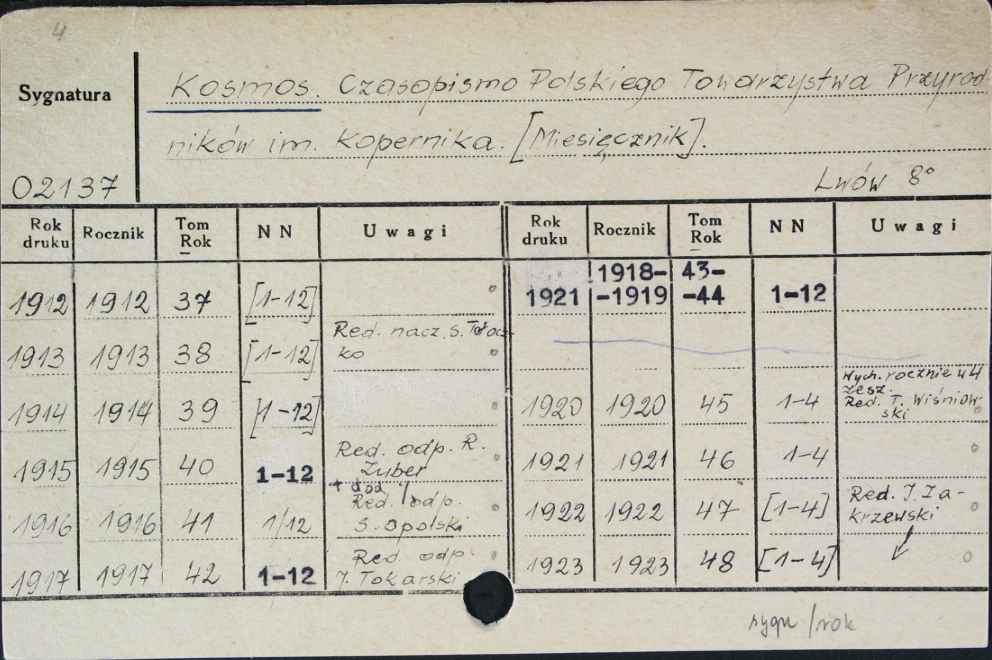 4
Sygnatura
Kosmos. Czasopismo Polskiego Towarzystwa Przyrod
ników im. Kopernika. [Miesięcznik].
02137
Lwów 8°
Rok druku Rocznik Tom Rok NN Uwagi
1912 1912 37 [1-12]
1913 1913 38 [1-12] Red. nacz. S. Tołłocz-
ko
1914 1914 39 [1-12]
1915 1915 40 1-12 Red. odp. R.
Zuber
+ dod
1916 1916 41 1/12 Red. odp.
S. Opolski
1917 1917 42 1-12 Red. odp.
J. Tokarski
Rok druku Rocznik Tom Rok NN Uwagi
1918- 43-
1921 -1919 -44 1-12
1920 1920 45 1-4 Wych. rocznie w 4
zesz.
Red. T. Wiśniow-
ski
1921 1921 46 1-4
1922 1922 47 [1-4] Red. J. Za-
krzewski
1923 1923 48 [1-4]
sygn/rok